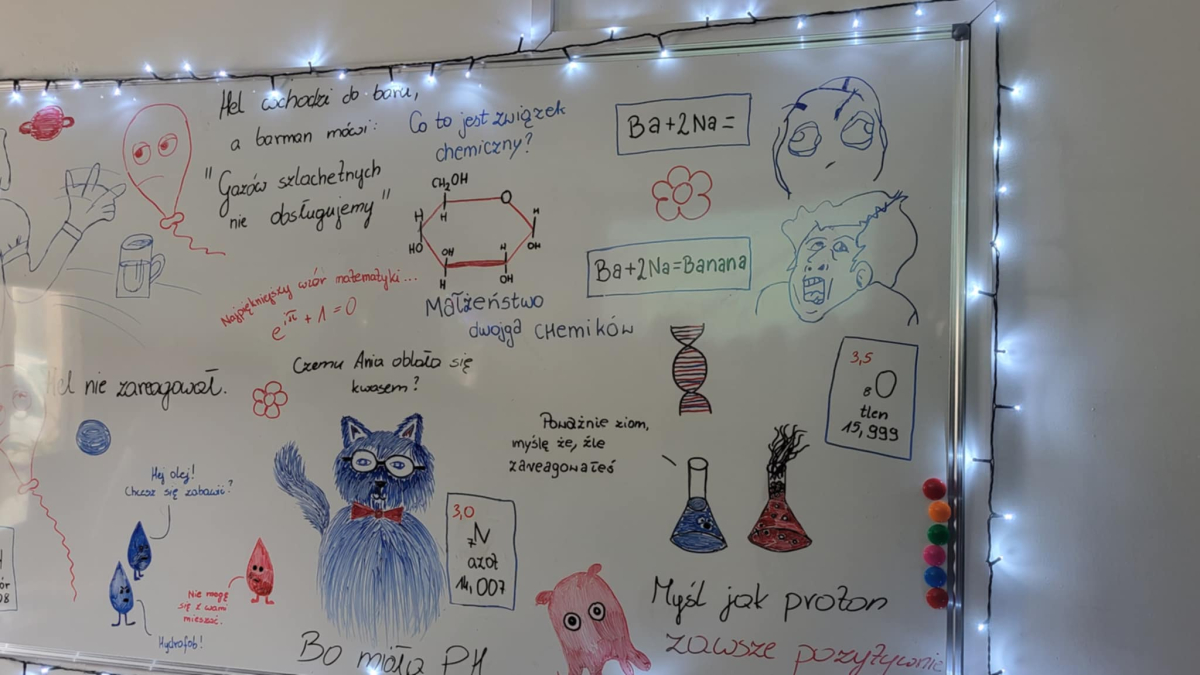 Hel wchodzi do baru,
a barman mówi:
"Gazów szlachetnych
nie obsługujemy"
Co to jest związek
chemiczny?
CH₂OH
O
H
H
H
HO
OH
H
OH
H
H
OH
Małżeństwo
dwojga CHEMIKÓW
Ba+2Na=
Ba+2Na=Banana
Najpiękniejszy wzór matematyki...
e^iπ + 1 = 0
Hel nie zareagował.
Czemu Ania oblała się
kwasem?
Bo miała PH
Hej olej!
Chcesz się zabawić?
Nie mogę
się z wami
mieszać.
Hydrofob!
3,0
₇N
azot
14,007
Poważnie ziom,
myślę że, źle
zareagowałeś
3,5
₈O
tlen
15,999
Myśl jak proton
zawsze pozytywnie